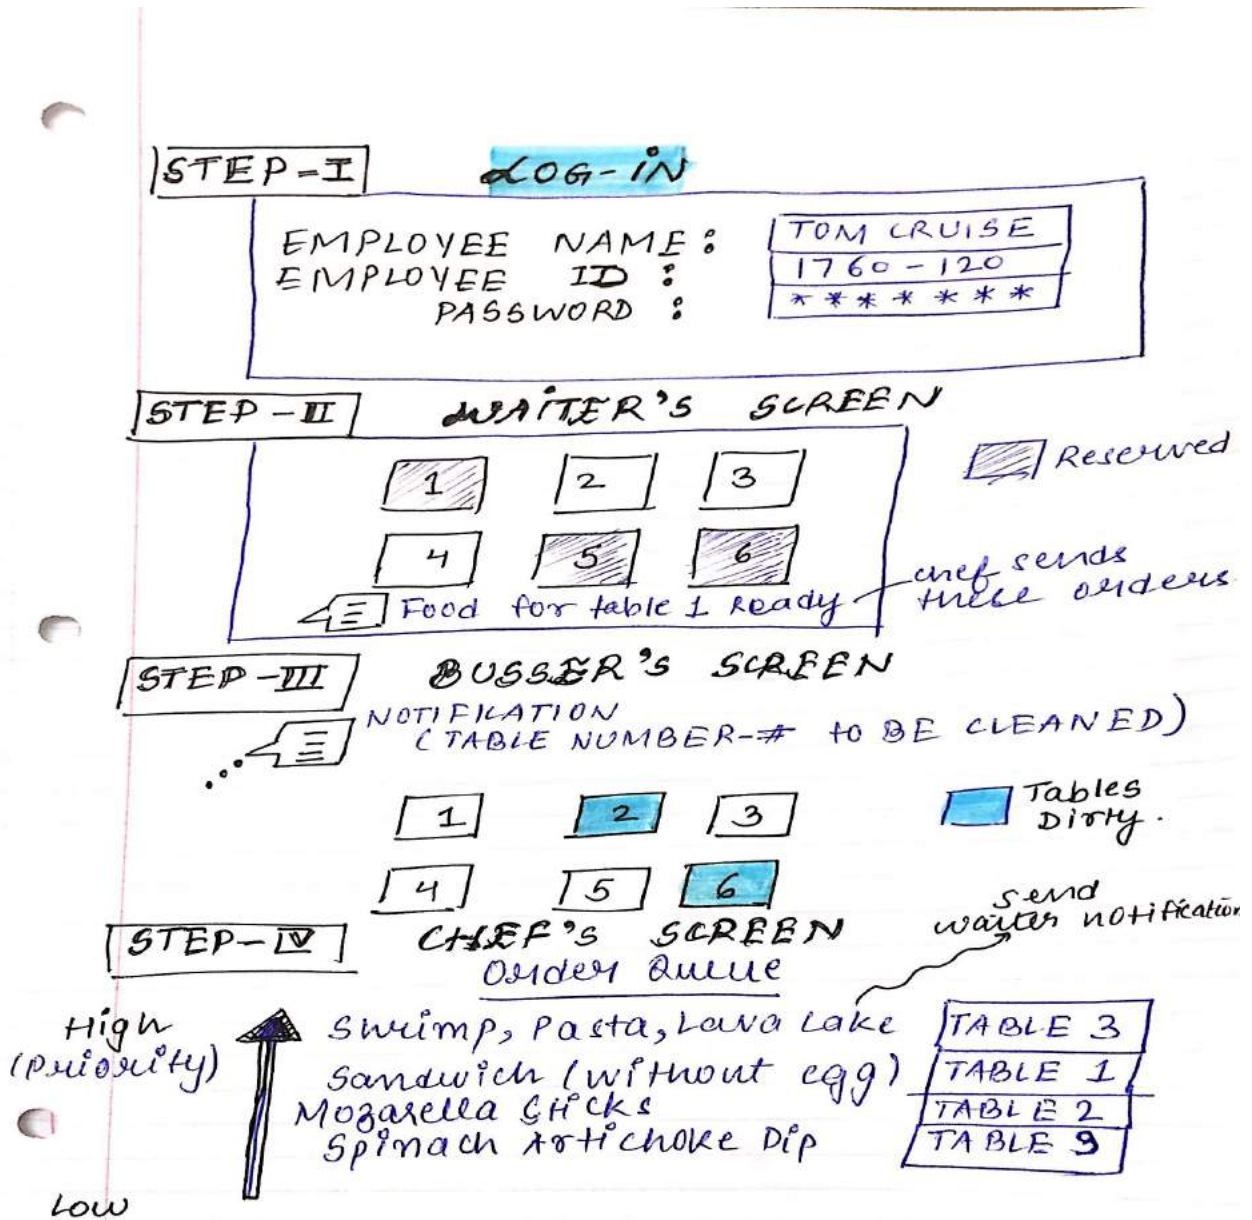 STEP-I LOG-IN
EMPLOYEE NAME: TOM CRUISE
EMPLOYEE ID: 1760-120
PASSWORD: *******
STEP-II WAITER'S SCREEN
1 2 3
Reserved
4 5 6
Food for table 1 Ready
chef sends
these orders
STEP-III BUSSER'S SCREEN
NOTIFICATION
(TABLE NUMBER-# to BE CLEANED)
1 2 3
Tables
Dirty.
4 5 6
send
waiter notification
STEP-IV CHEF'S SCREEN
Order Queue
High
(Priority)
Shrimp, Pasta, Lava Cake TABLE 3
Sandwich (without egg) TABLE 1
Mozarella Sticks TABLE 2
Spinach Artichoke Dip TABLE 9
LOW